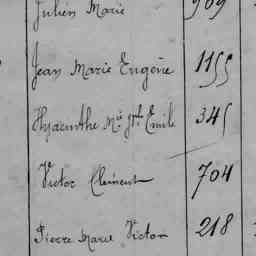 Julien Marie 909
Jean Marie Eugène 1155
Hyacinthe Mie Jph Emile 345
Victor Clément 704
Pierre Marie Victor 218